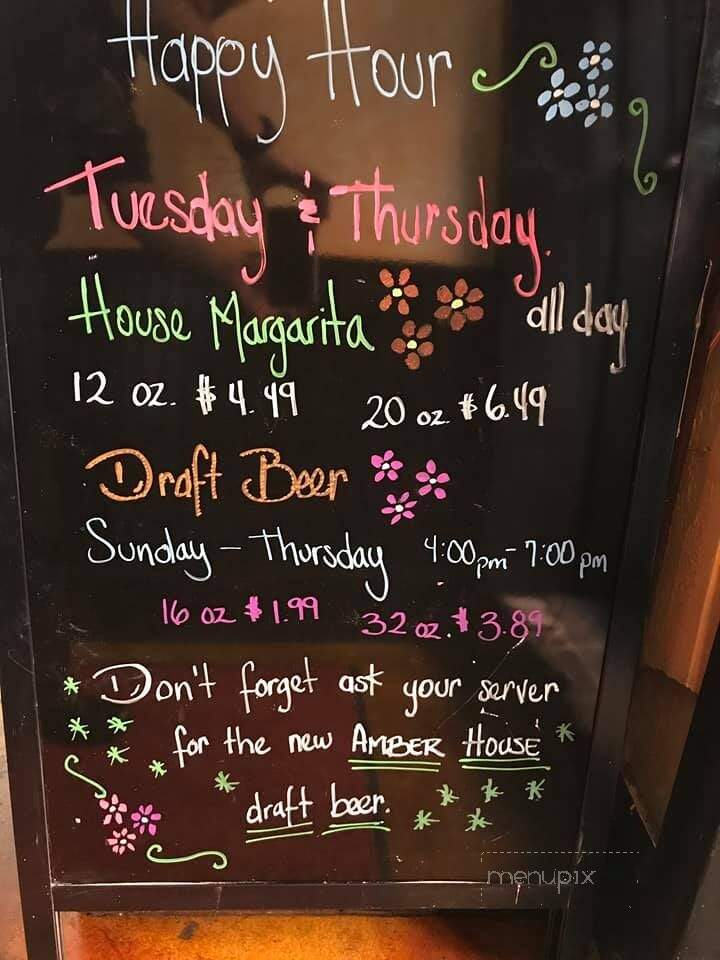 Happy Hour
Tuesday & Thursday.
House Margarita all day
12 oz. $4.49 20 oz. $6.49
Draft Beer
Sunday - Thursday 4:00pm - 7:00pm
16 oz $1.99 32 oz. $3.89
Don't forget ask your server
for the new AMBER HOUSE
draft beer.
menupix